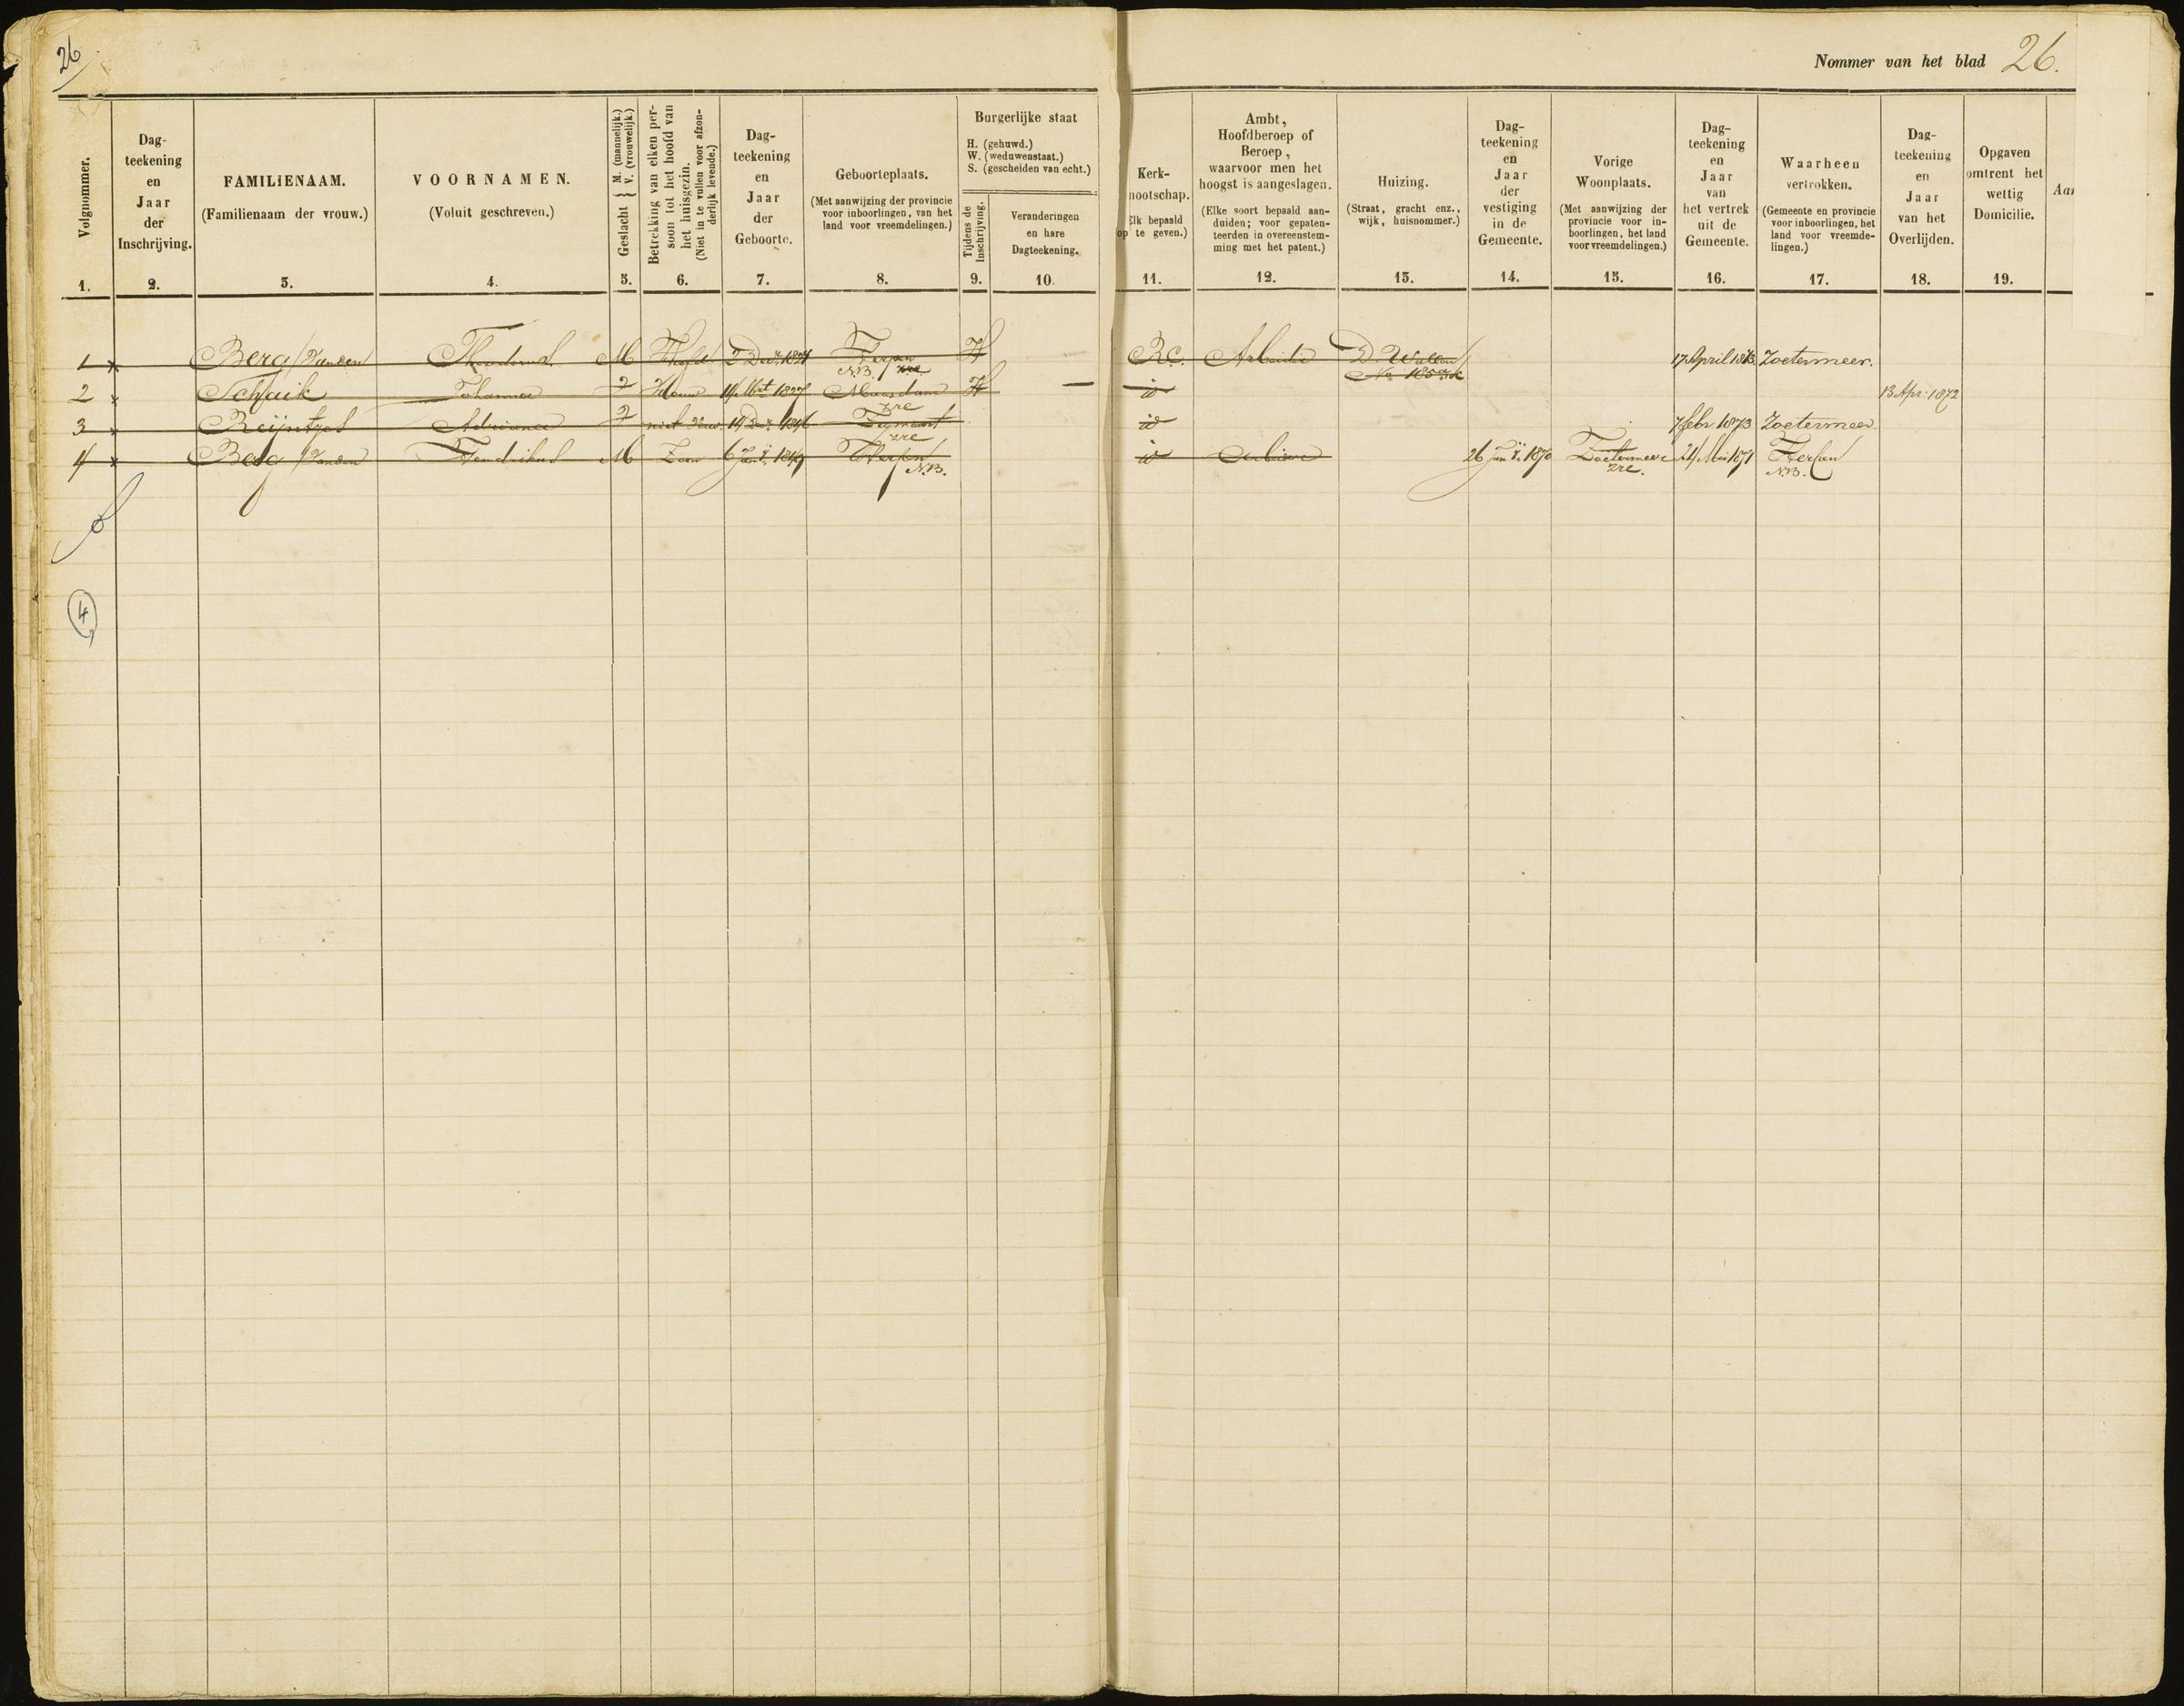 26
Nommer van het blad 26.
Volgnommer.
1.
Dag-
teekening
en
Jaar
der
Inschrijving.
2.
FAMILIENAAM.
(Familienaam der vrouw.)
3.
VOORNAMEN.
(Voluit geschreven.)
4.
Geslacht } M. (mannelijk.)
V. (vrouwelijk.)
5.
Betrekking van elken per-
soon tot het hoofd van
het huisgezin.
(Niet in te vullen voor afzon-
derlijk levende.)
6.
Dag-
teekening
en
Jaar
der
Geboorte.
7.
Geboorteplaats.
(Met aanwijzing der provincie
voor inboorlingen, van het
land voor vreemdelingen.)
8.
Burgerlijke staat
H. (gehuwd.)
W. (weduwenstaat.)
S. (gescheiden van echt.)
Tijdens de
Inschrijving.
9.
Veranderingen
en hare
Dagteekening.
10.
Kerk-
nootschap.
Elk bepaald
op te geven.)
11.
Ambt,
Hoofdberoep of
Beroep,
waarvoor men het
hoogst is aangeslagen.
(Elke soort bepaald aan-
duiden; voor gepaten-
teerden in overeenstem-
ming met het patent.)
12.
Huizing.
(Straat, gracht enz.,
wijk, huisnommer.)
13.
Dag-
teekening
en
Jaar
der
vestiging
in de
Gemeente.
14.
Vorige
Woonplaats.
(Met aanwijzing der
provincie voor in-
boorlingen, het land
voor vreemdelingen.)
15.
Dag-
teekening
en
Jaar
van
het vertrek
uit de
Gemeente.
16.
Waarheen
vertrokken.
(Gemeente en provincie
voor inboorlingen, het
land voor vreemde-
lingen.)
17.
Dag-
teekening
en
Jaar
van het
Overlijden.
18.
Opgaven
omtrent het
wettig
Domicilie.
19.
Aan
1 Berg / Vanden Theodorus M Hoofd H R.C. Arbeider 17 April 1873 Zoetermeer.
N.B.
2 Schaik Johanna Vrouw Maasdam H id 13 Apr. 1872
zre
3 Adriana id 7 febr 1873 Zoetermeer
zre
4 Berg / Vanden Hendrikus M Zoon 6 Jan 1849 id 26 1870 Zoetermeer 21 Mei 1871
N.B. zre. N.B.
4